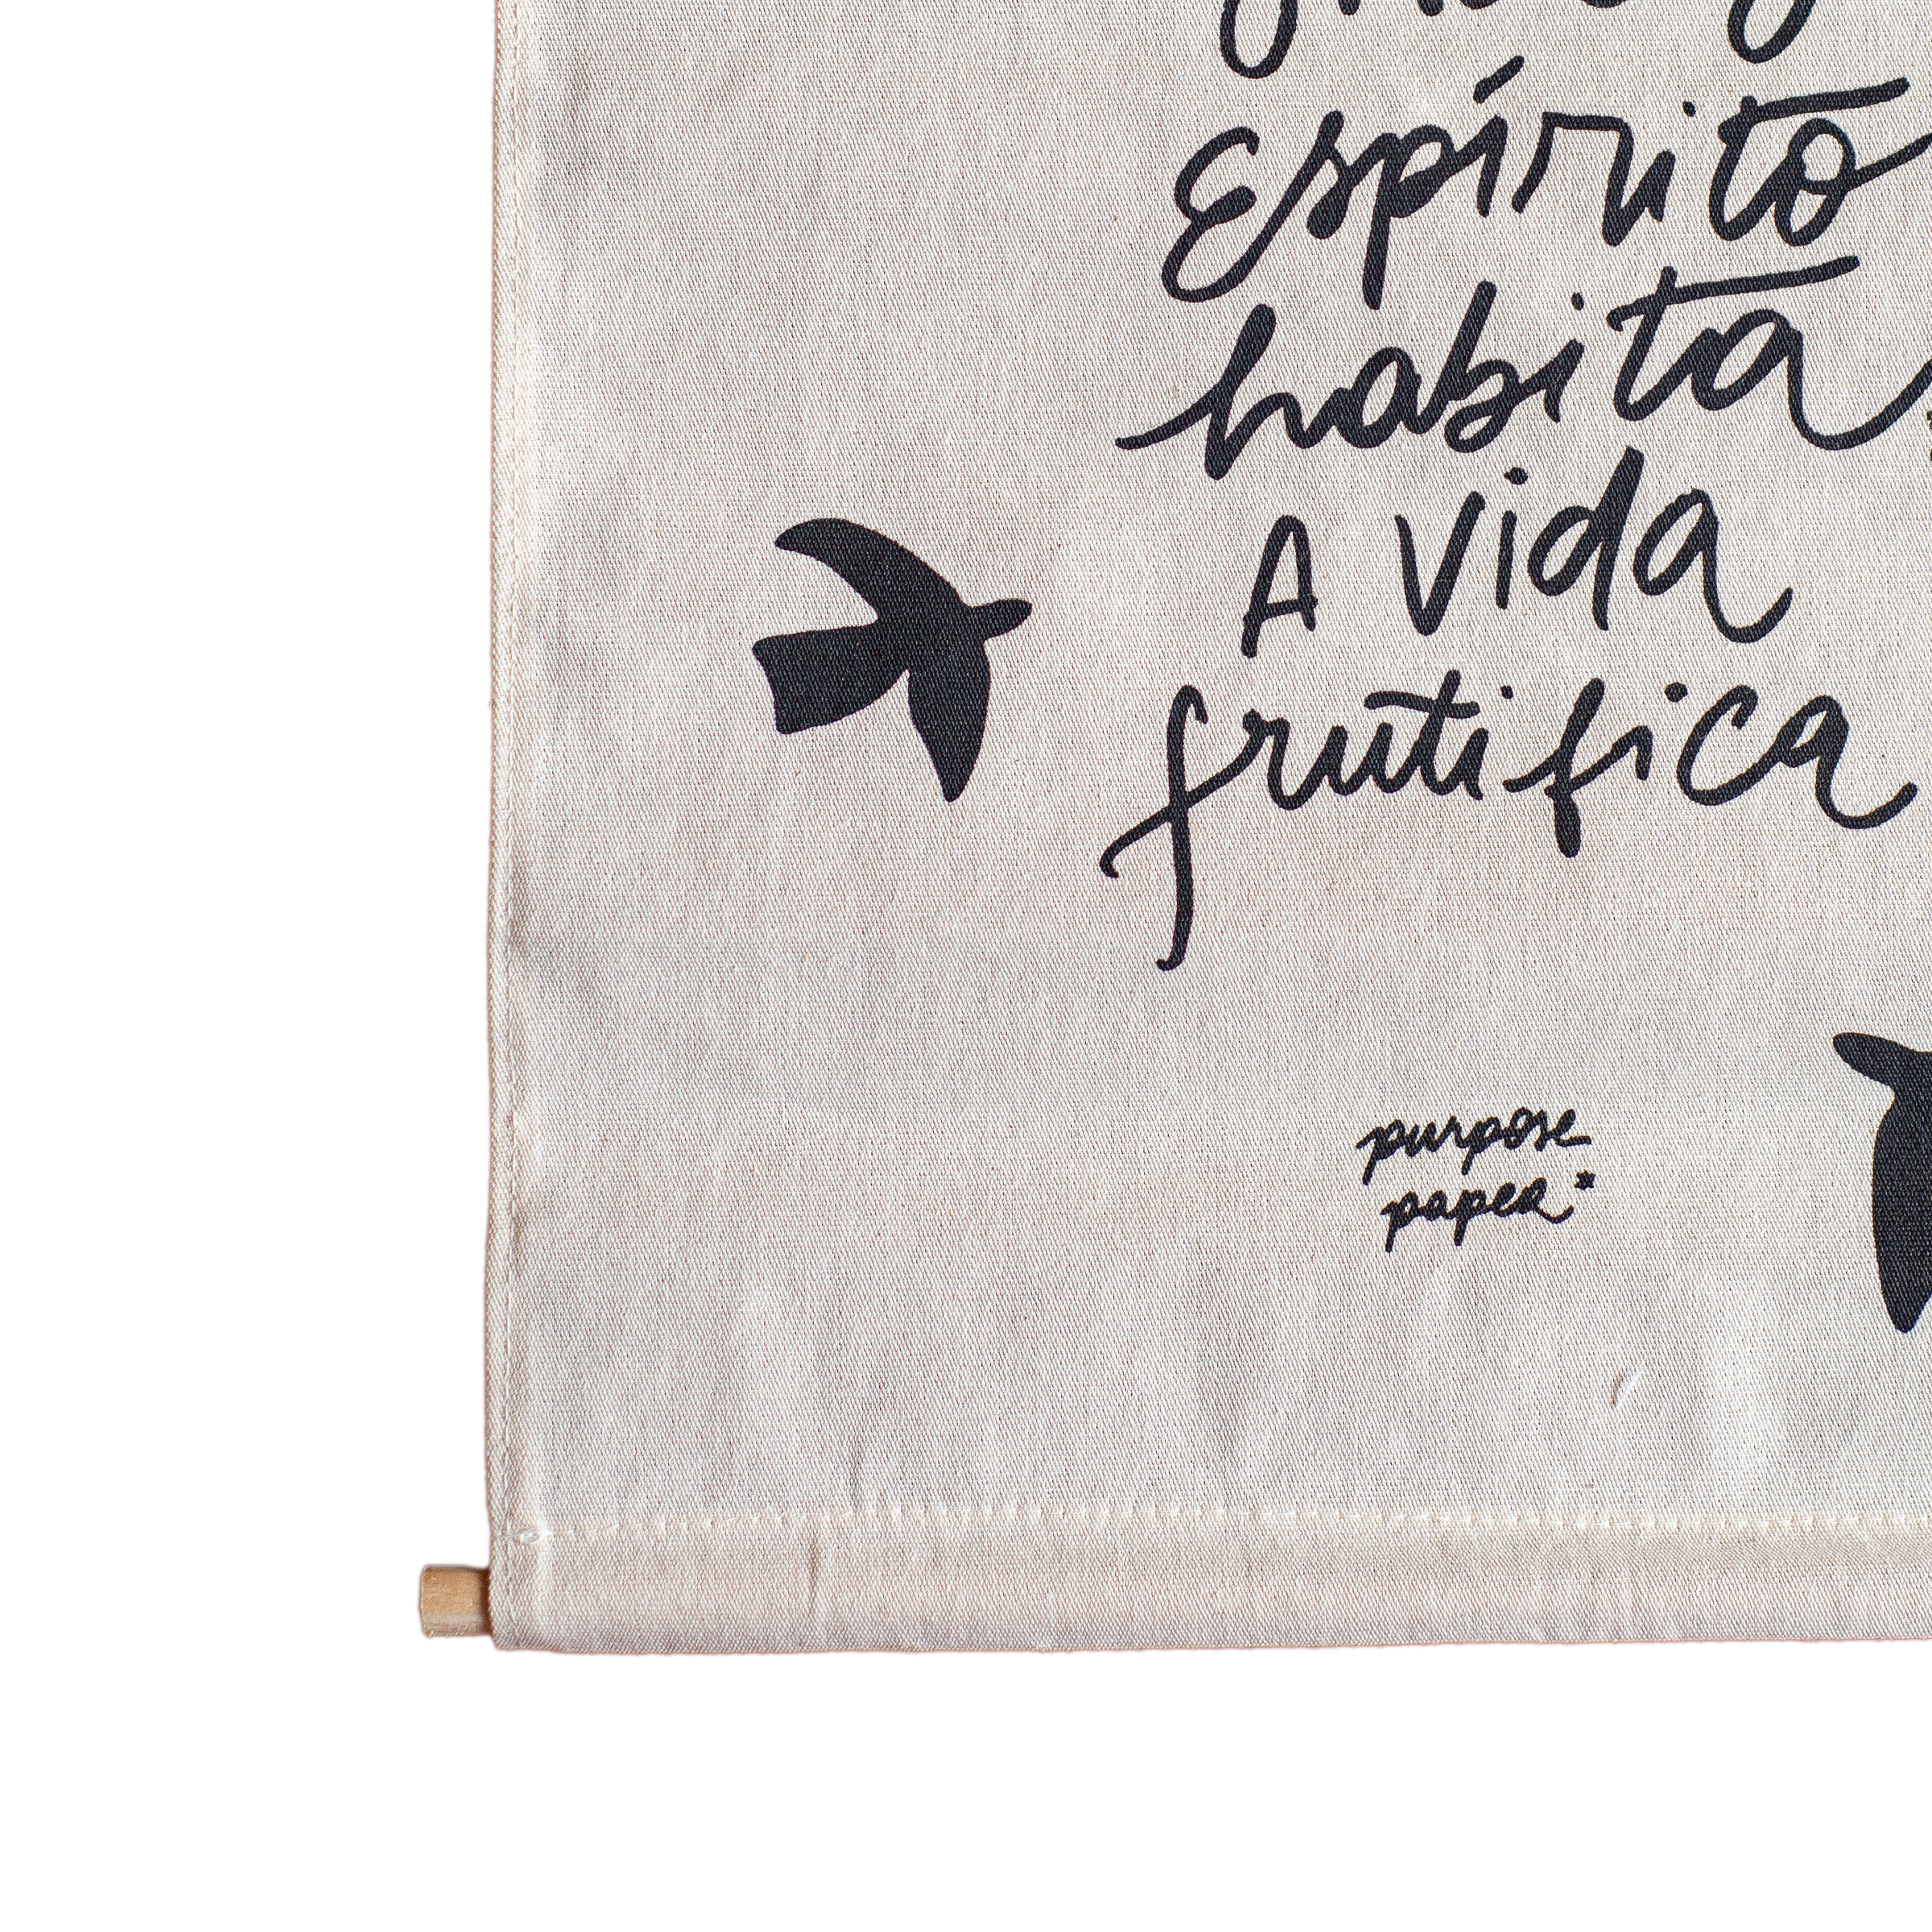 espírito
habita
A vida
frutifica
purpose
paper*